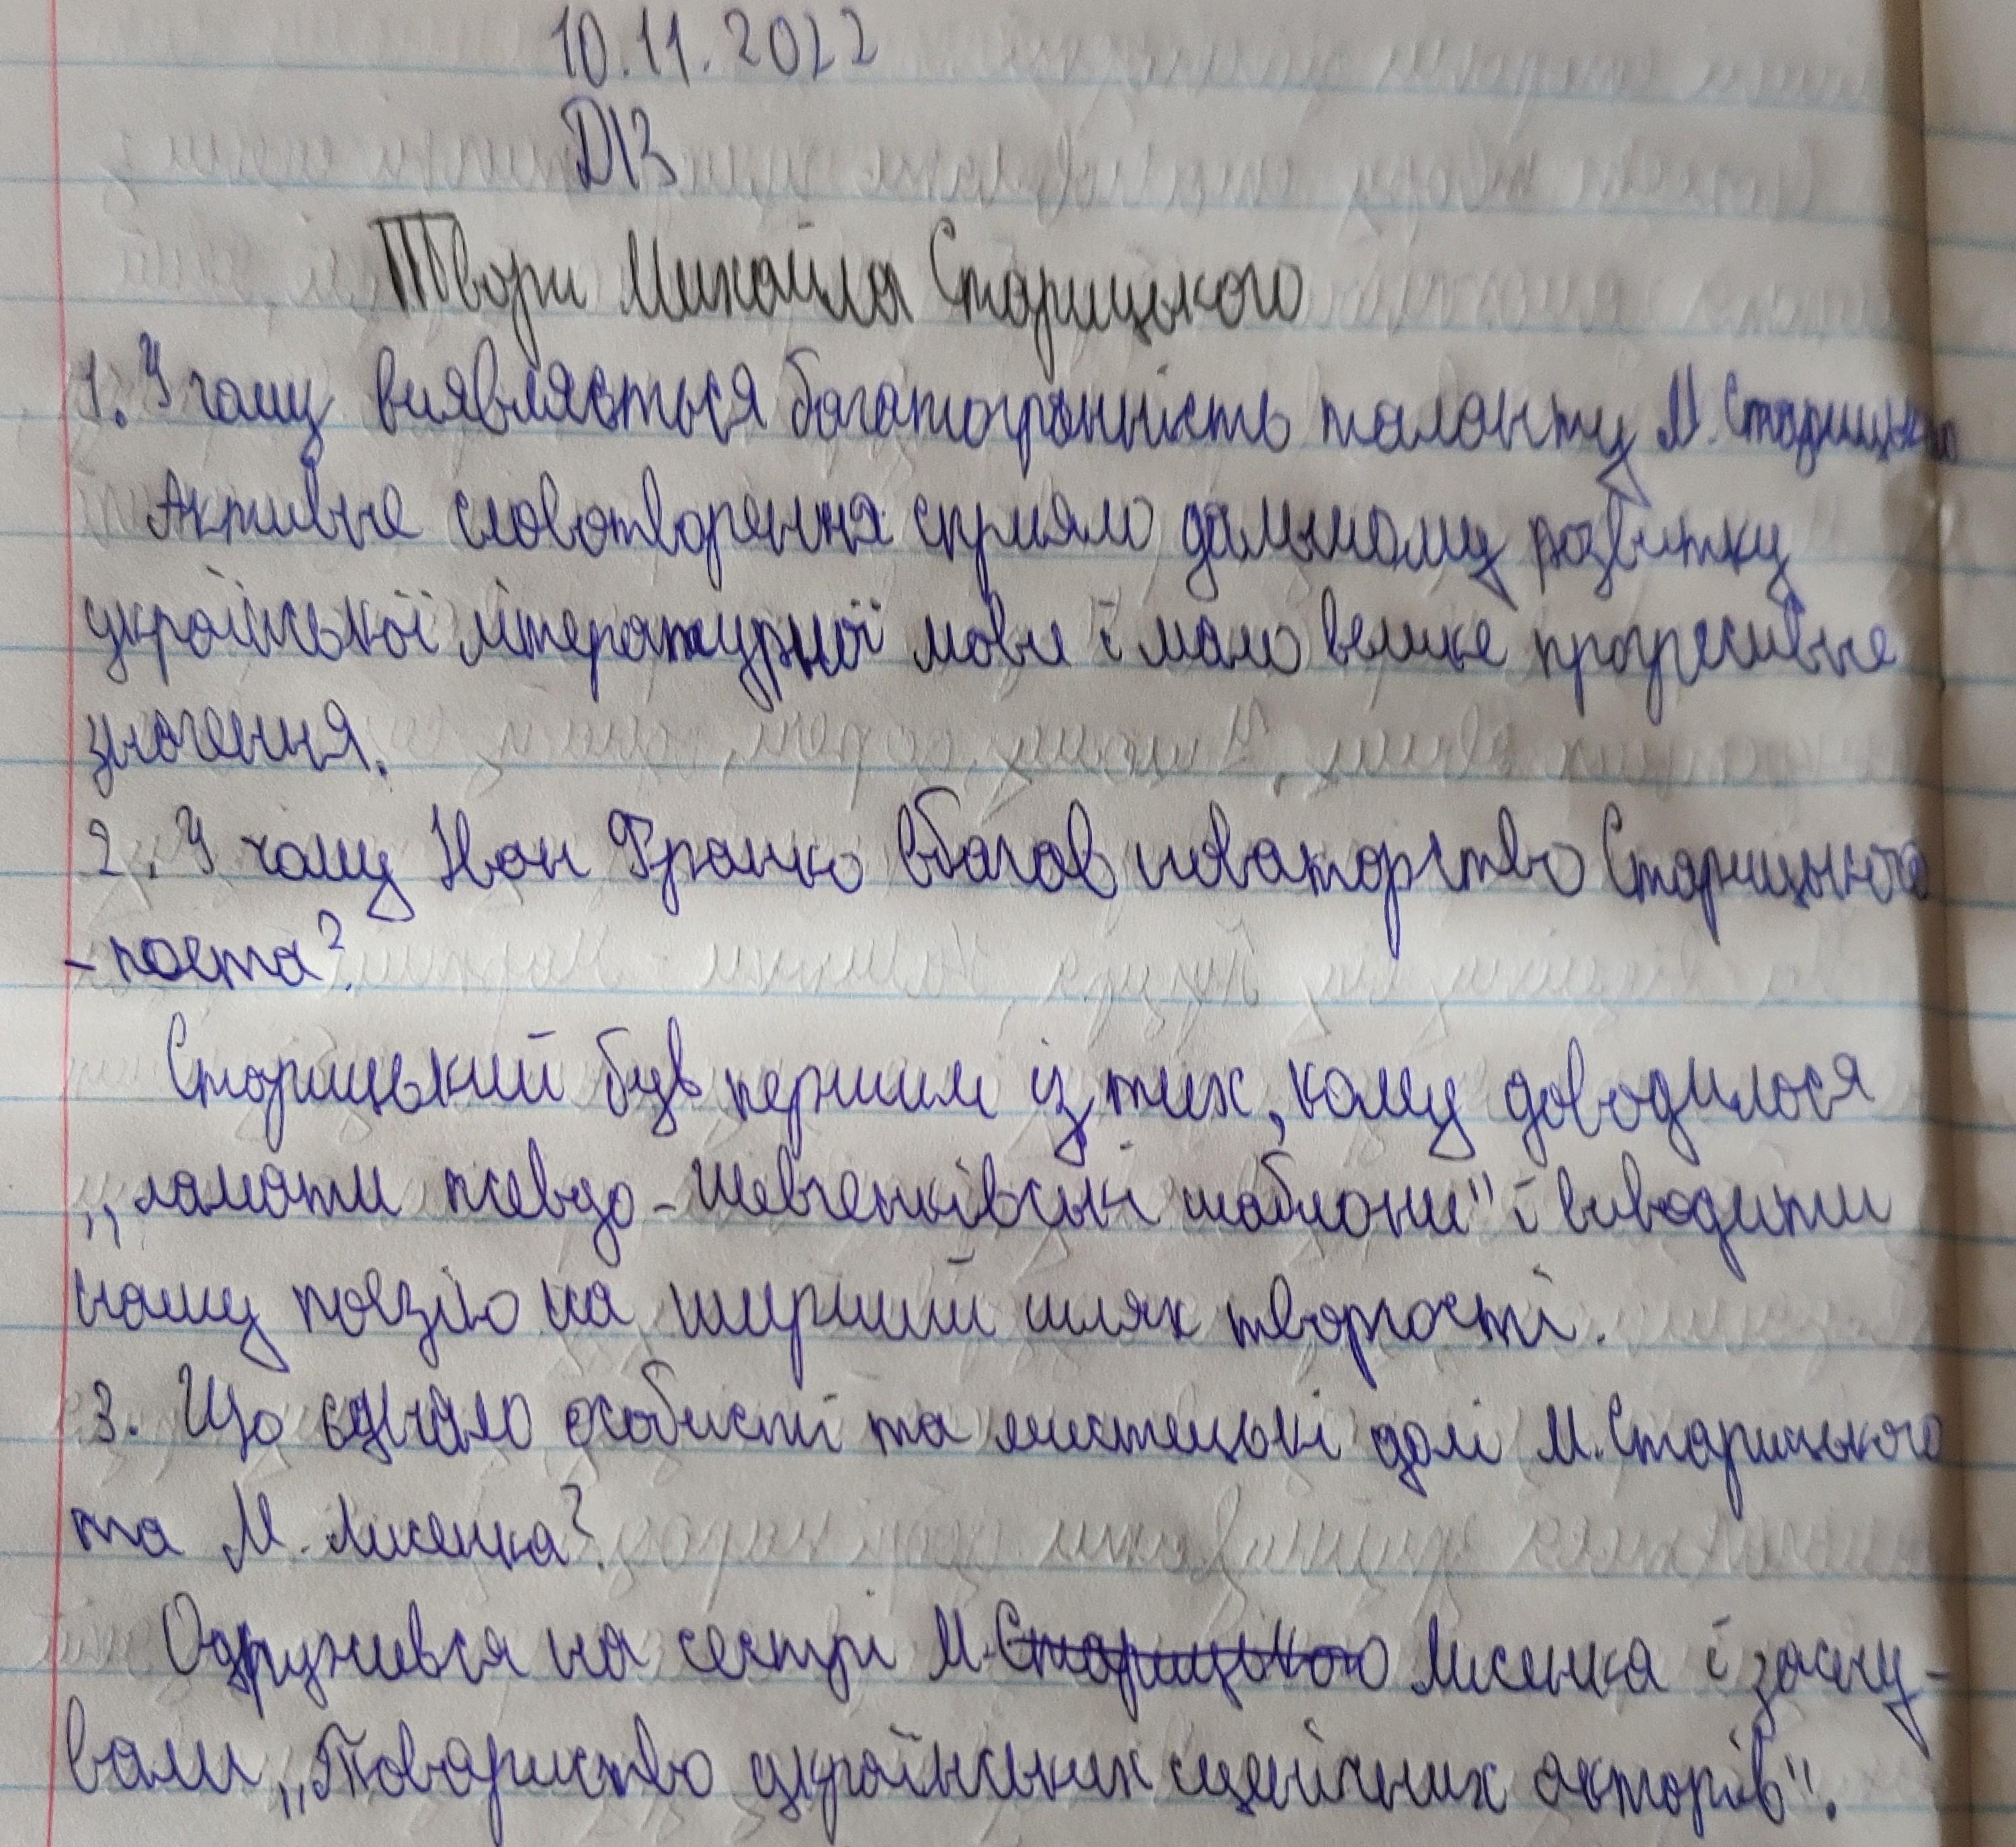 10.11.2022
ДІЗ
Твори Михайла Старицького
1. У чому виявляється багатогранність таланту М. Старицького
Активне словотворення сприяло дальшому розвитку
української літературної мови і мало велике прогресивне
значення.
2. У чому Іван Франко вбачав новаторство Старицького
- поета?
Старицький був першим із тих, кому доводилося
„ламати псевдо-шевченківські шаблони" і виводити
нашу поезію на ширший шлях творчості.
3. Що єднало особисті та мистецькі долі М. Старицького
та М. Лисенка?
Одружився на сестрі М. Старицького Лисенка і засну-
вали „Товариство українських сценічних акторів".